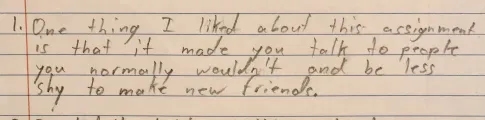 1. One thing I liked about this assignment
is that it made you talk to people
you normally wouldn't and be less
shy to make new friends.